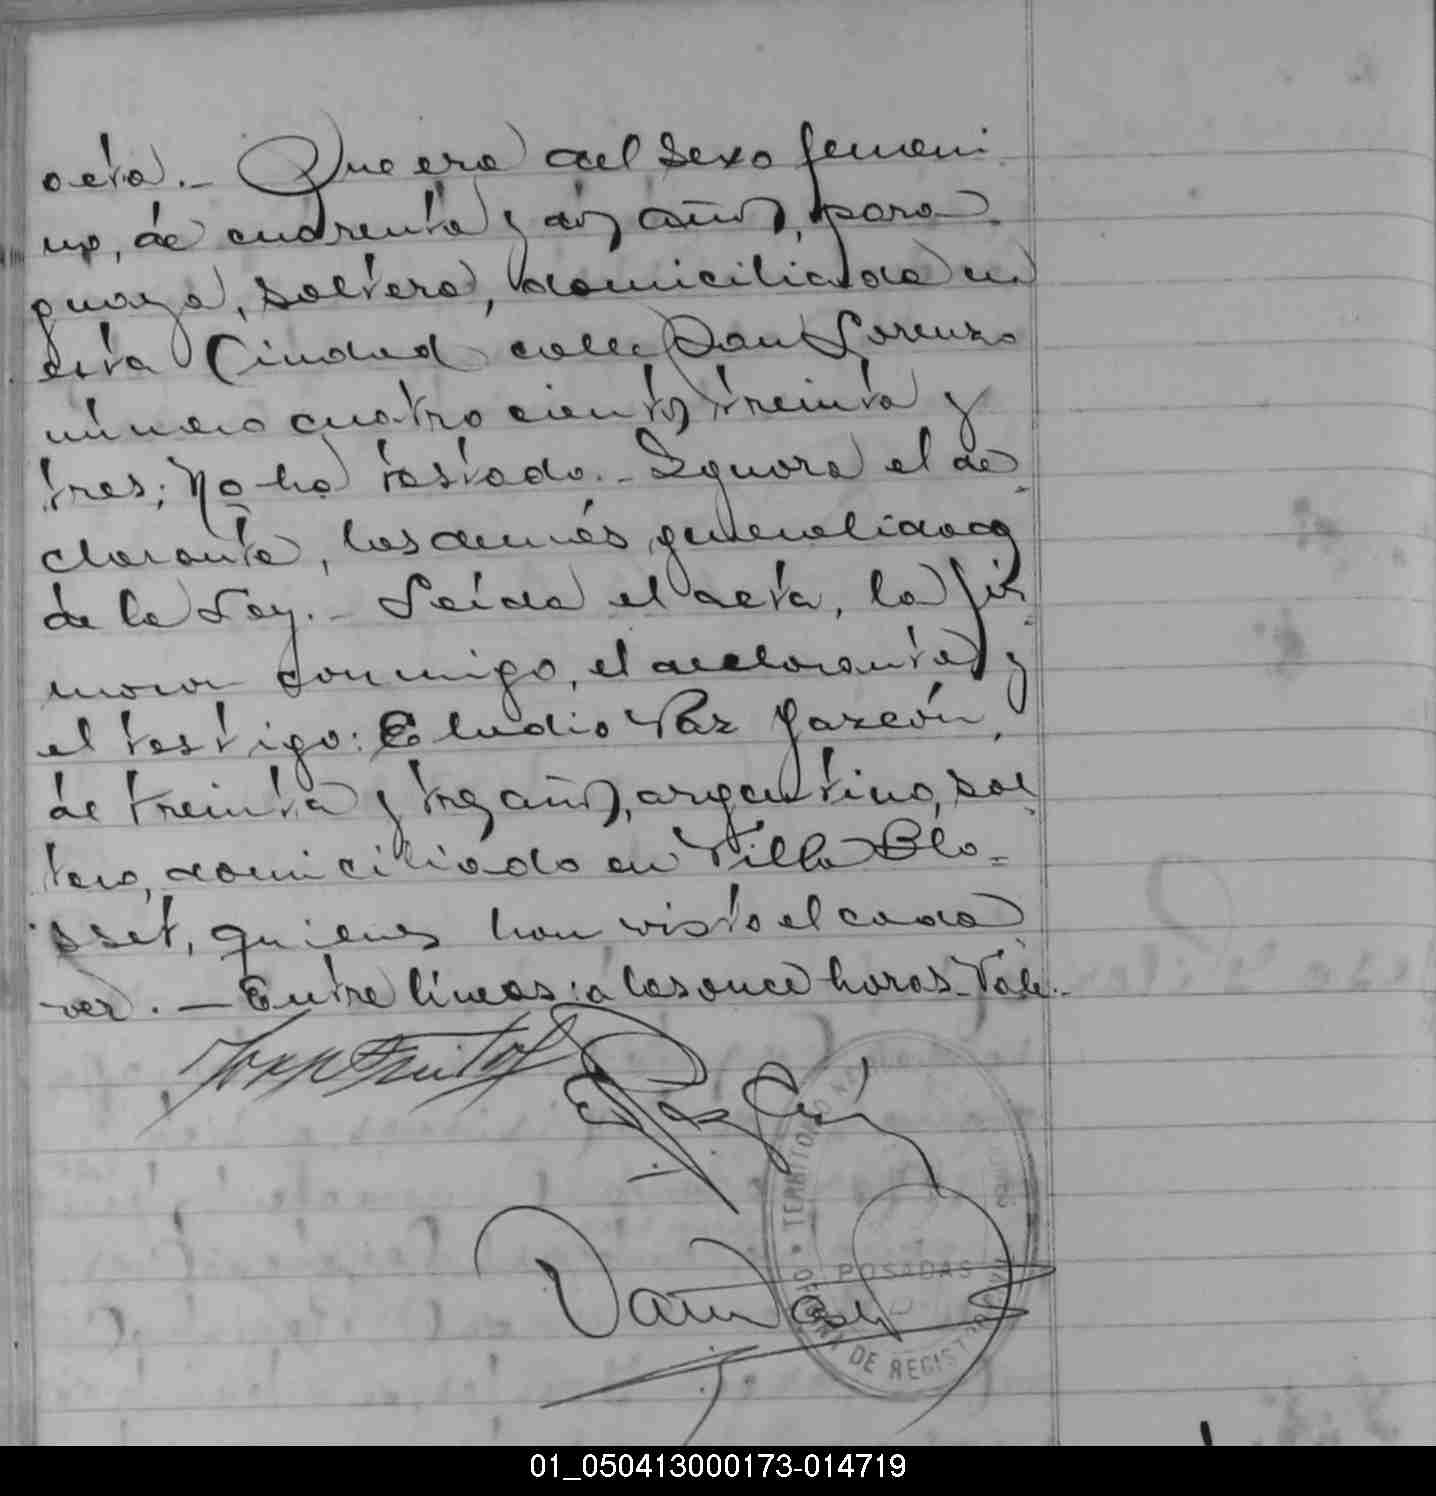 acta.- Que era del sexo femeni
no, de cuarenta y dos años, para-
guaya, soltera, domiciliada en
esta Ciudad calle San Lorenzo
número cuatrocientos treinta y
tres; No ha testado.- Ignora el de-
clarante, las demás generalidades
de la Ley.- Leída el acta, la fir-
maron conmigo, el declarante y
el testigo: Eludio Paz Garzón,
de treinta y tres años, argentino, sol-
tero, domiciliado en Villa Blo-
sset, quienes han visto el cadá
ver.- Entre líneas: a las once horas-Vale.-
TERRITORIO
POSADAS
DE REGISTRO
01_050413000173-014719